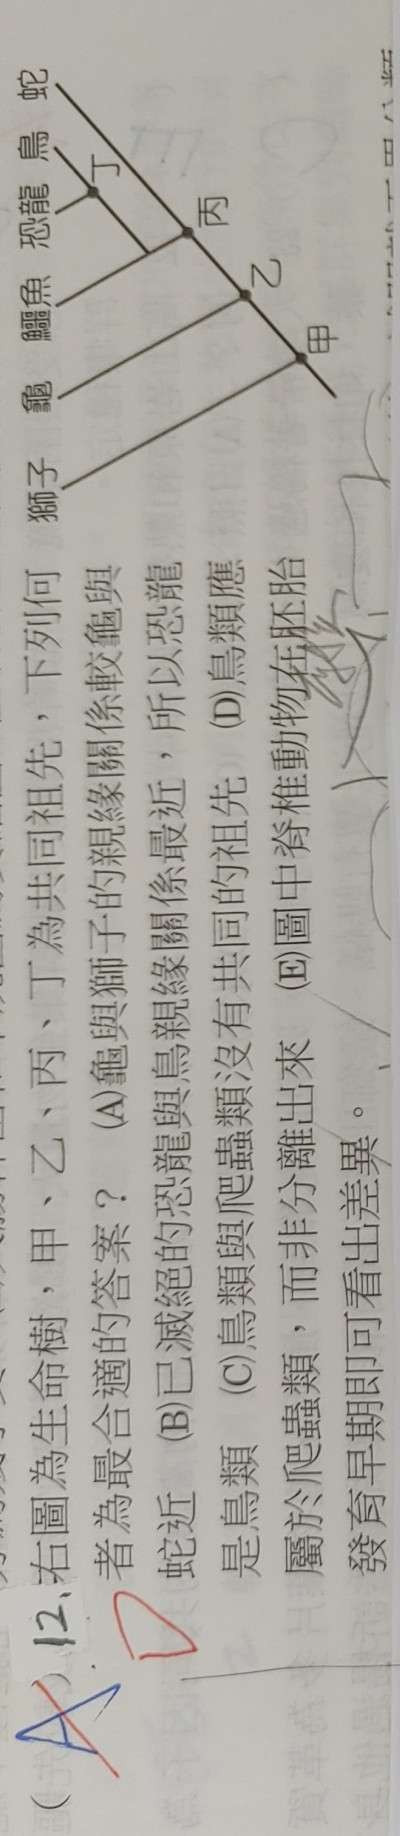 (A) 12.右圖為生命樹，甲、乙、丙、丁為共同祖先，下列何
D
者為最合適的答案？ (A)龜與獅子的親緣關係較龜與
蛇近 (B)已滅絕的恐龍與鳥親緣關係最近，所以恐龍
是鳥類 (C)鳥類與爬蟲類沒有共同的祖先 (D)鳥類應
屬於爬蟲類，而非分離出來 (E)圖中脊椎動物在胚胎
發育早期即可看出差異。
獅子 龜 鱷魚 恐龍 鳥 蛇
丁
丙
乙
甲